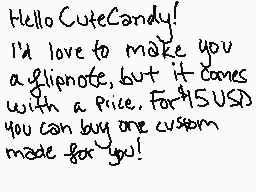 Hello CuteCandy!
I'd love to make you
a flipnote, but it comes
with a price. For $15 USD
you can buy one custom
made for you!